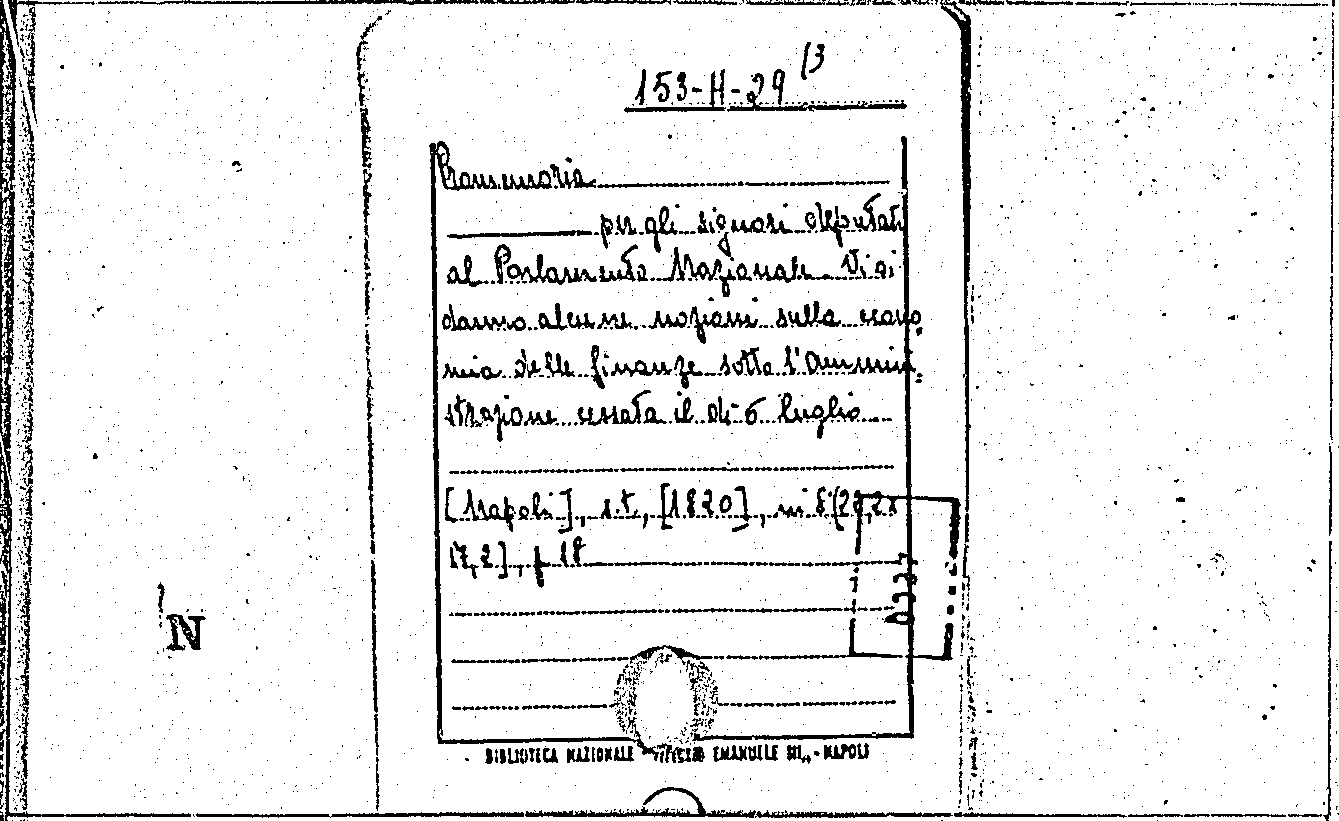 153-H-29 (3
Promemoria
per gli signori deputati
al Parlamento Nazionale. Vi si
danno alcune nozioni sulla econo=
mia delle finanze sotto l'Ammini=
strazione cessata il dì 5 luglio
[Napoli], s.t., [1820], in 8°(22,2x
17,2], p 18
N
BIBLIOTECA NAZIONALE EMANUELE III„ - NAPOLI